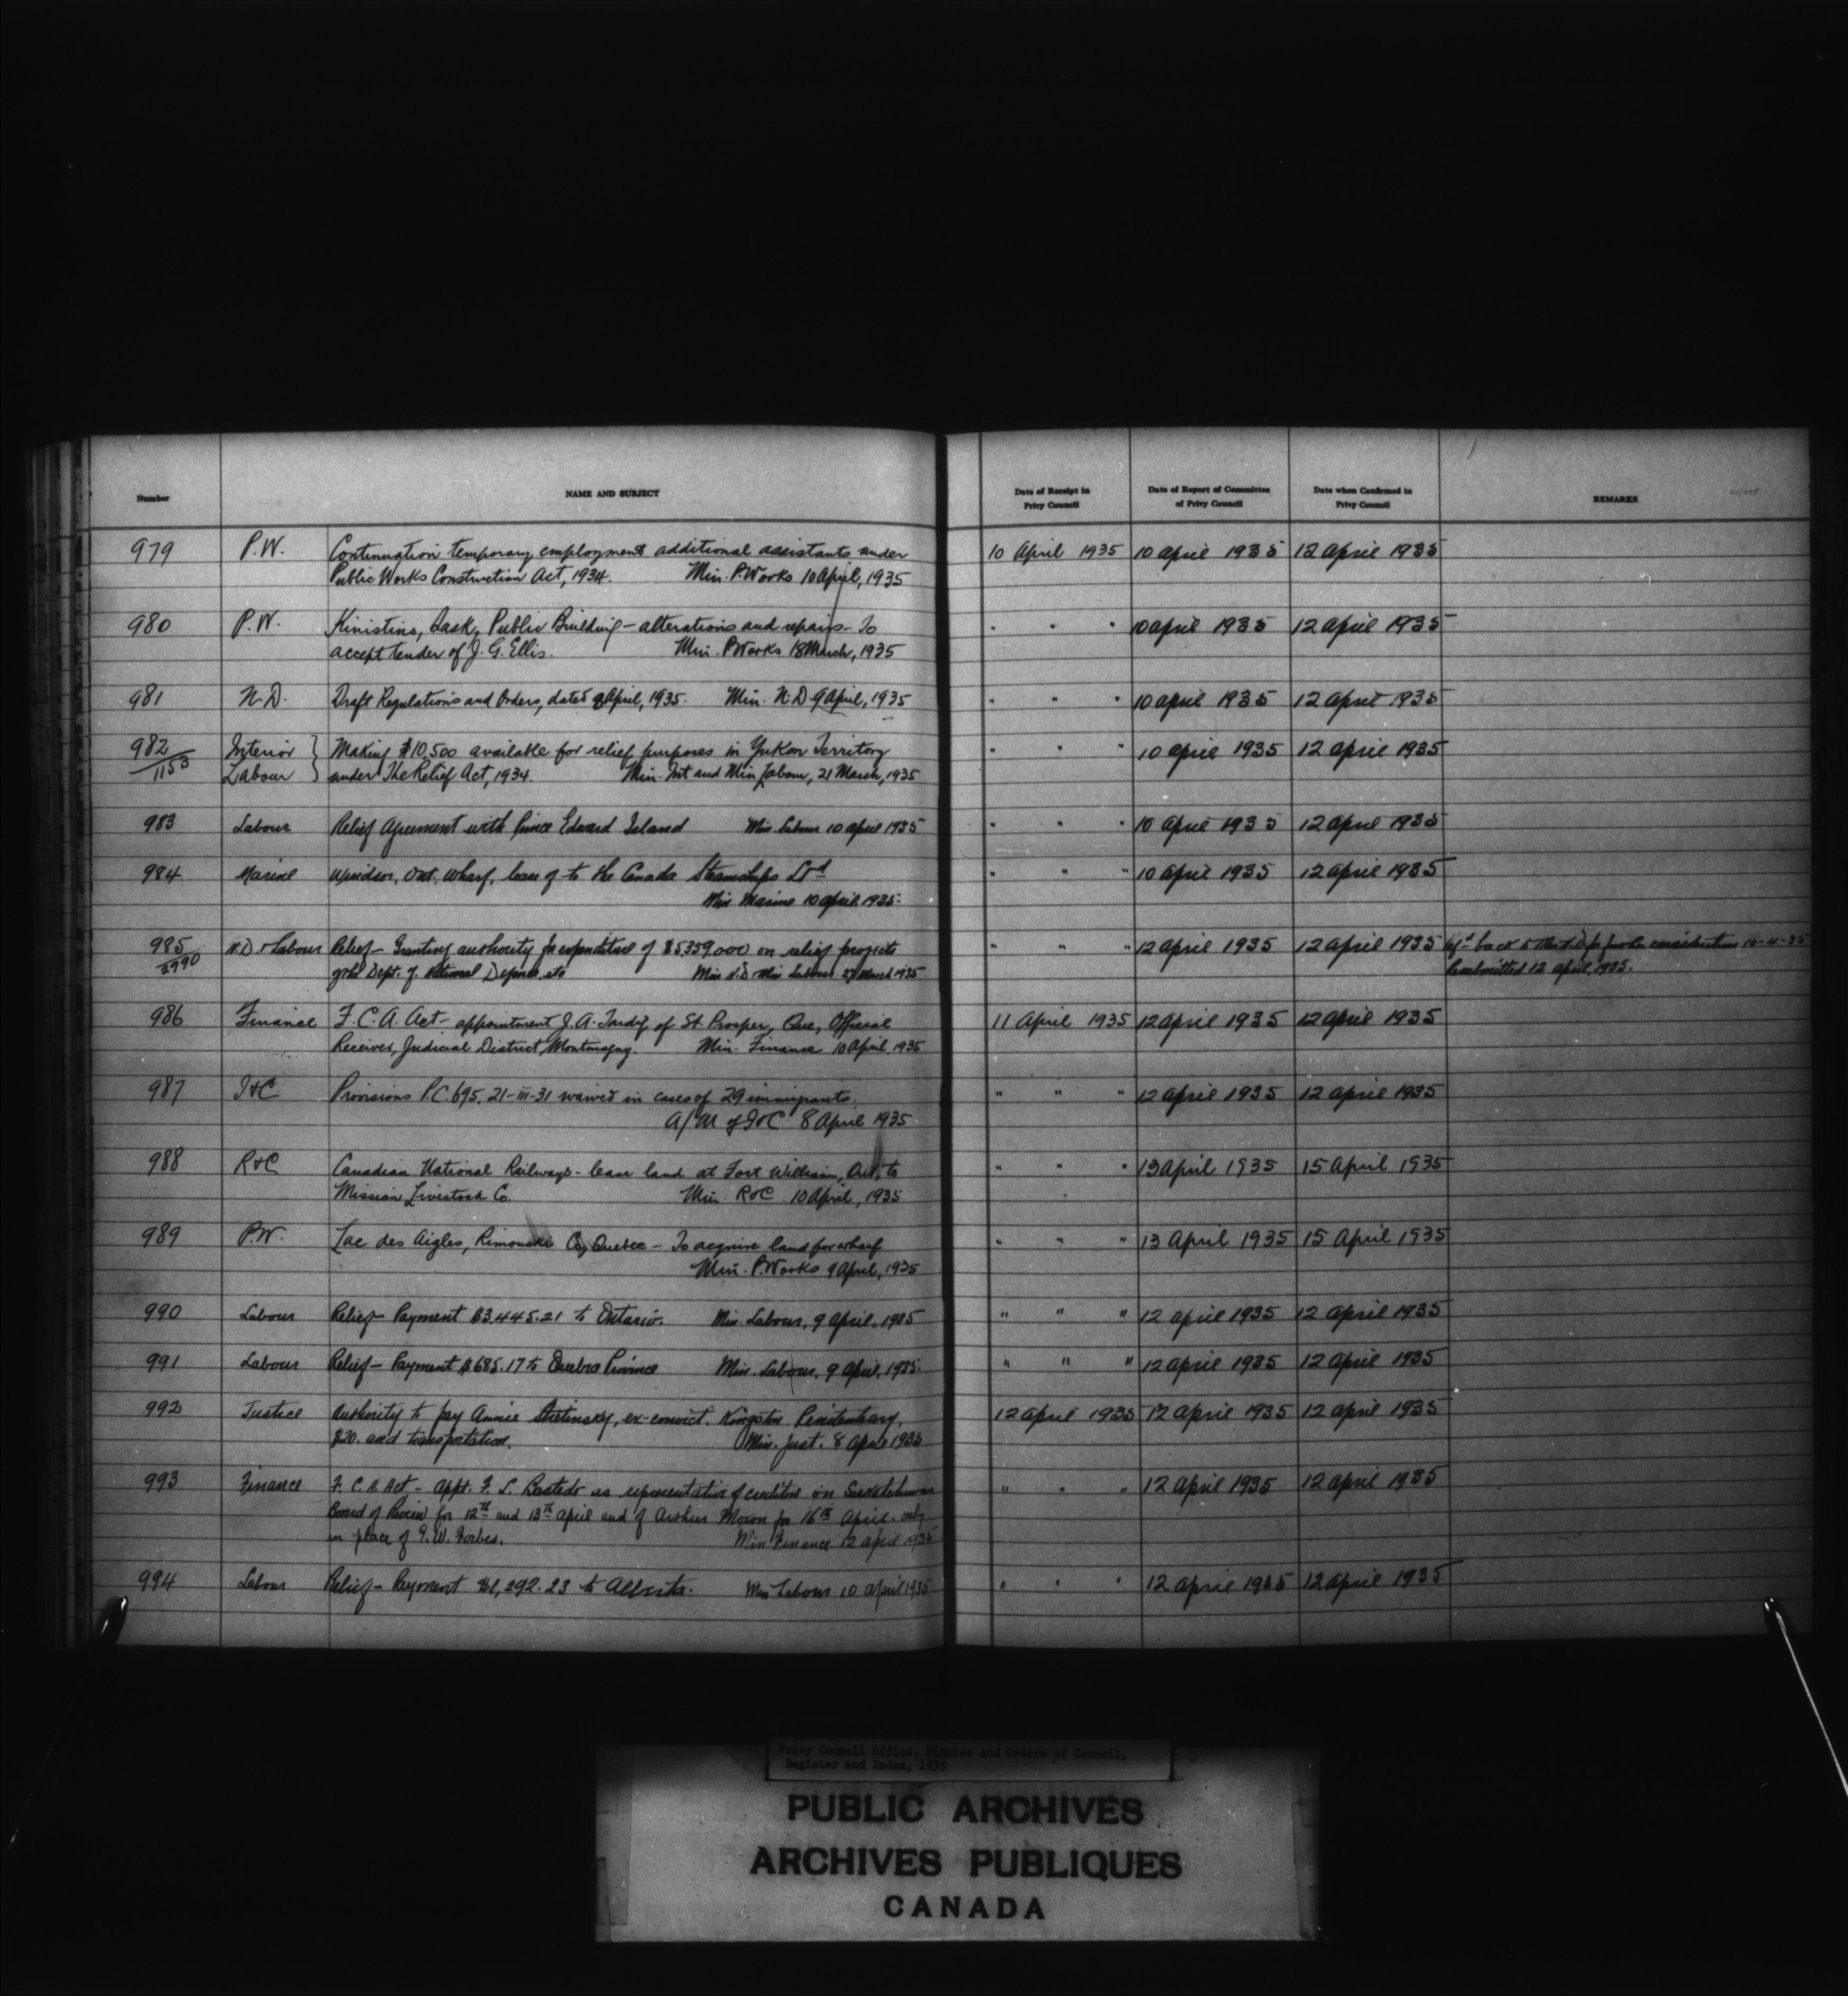 Number
NAME AND SUBJECT
Date of Receipt in
Privy Council
Date of Report of Committee
of Privy Council
Date when Confirmed in
Privy Council
REMARKS
979 P.W. Continuation temporary employment additional assistants under 10 April 1935 10 April 1935 12 April 1935
Public Works Construction Act, 1934. Min. P. Works 10 April, 1935
980 P.W. Kinistino, Sask, Public Building - alterations and repairs - To " " " 10 April 1935 12 April 1935
accept tender of J. G. Ellis. Min. P. Works 18 March, 1935
981 N.D. Draft Regulations and Orders, dated 9 April, 1935. Min. N.D. 9 April, 1935 " " " 10 April 1935 12 April 1935
982 Interior } Making $10,500 available for relief purposes in Yukon Territory " " " 10 April 1935 12 April 1935
1153 Labour } under The Relief Act, 1934. Min. Int and Min Labour, 21 March, 1935
983 Labour Relief Agreement with Prince Edward Island Min. Labour 10 April 1935 " " " 10 April 1935 12 April 1935
984 Marine Windsor, Ont. wharf, lease of to the Canada Steamships Ltd " " " 10 April 1935 12 April 1935
Min Marine 10 April 1935.
985 N.D. & Labour Relief - Granting authority for expenditure of $5,359,000 on relief projects " " " 12 April 1935 12 April 1935 back to for further consideration 10-4-35
of the Dept. of National Defence etc Min N.D. Min Labour 27 March 1935 Resubmitted 12 April, 1935.
986 Finance F.C.A. Act - appointment J. A. Tardif of St. Prosper, Que, Official 11 April 1935 12 April 1935 12 April 1935
Receiver, Judicial District, Montmagny. Min. Finance 10 April 1935
987 I&C Provisions P.C. 695, 21-iii-31 waived in cases of 29 immigrants. " " " 12 April 1935 12 April 1935
A/M of I&C 8 April 1935
988 R&C Canadian National Railways - lease land at Fort William, Ont, to " " " 13 April 1935 15 April 1935
Mission Livestock Co. Min. R&C 10 April, 1935
989 P.W. Lac des Aigles, Rimouski Co, Quebec - To acquire land for wharf " " " 13 April 1935 15 April 1935
Min. P. Works 9 April, 1935
990 Labour Relief - Payment $3,445.21 to Ontario. Min. Labour, 9 April, 1935 " " " 12 April 1935 12 April 1935
991 Labour Relief - Payment $685.17 to Quebec Province Min. Labour, 9 April, 1935. " " " 12 April 1935 12 April 1935
992 Justice Authority to pay Annie ex-convict, Kingston Penitentiary, 12 April 1935 12 April 1935 12 April 1935
$20. and transportation. Min. Just. 8 April 1935
993 Finance F.C.A. Act - Appt. F. L. Bastedo as representative of creditors on Saskatchewan " " " 12 April 1935 12 April 1935
Board of Review for 12th and 13th April and of Arthur Moxon for 16th April only
in place of F. W. Forbes. Min Finance 12 April 1935
994 Labour Relief - Payment 292.23 to Alberta. Min Labour 10 April 1935 " " " 12 April 1935 12 April 1935
Privy Council Office, Minutes and Orders of Council,
Register and Index, 1935
PUBLIC ARCHIVES
ARCHIVES PUBLIQUES
CANADA